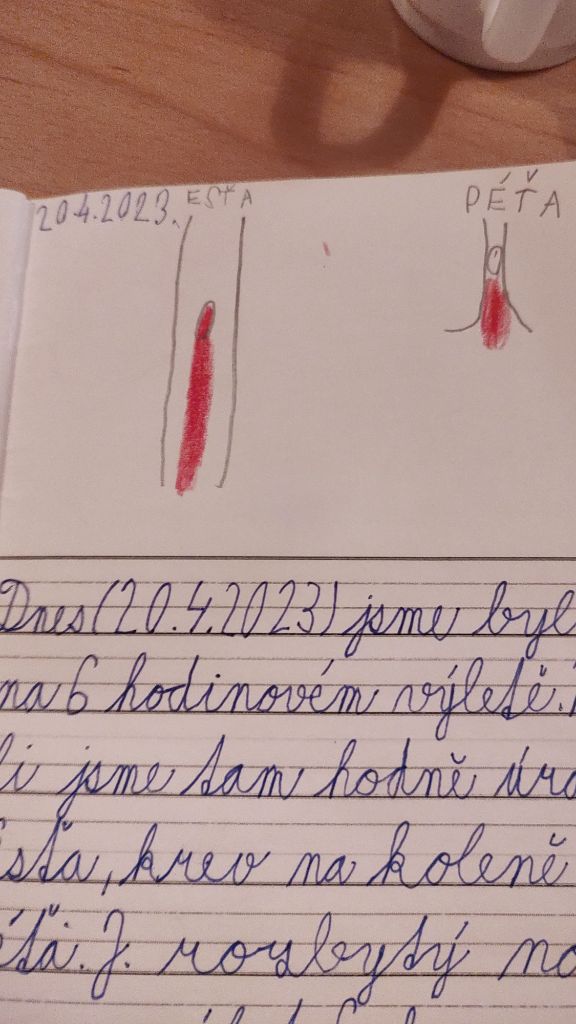 20.4.2023. ESŤA PÉŤA
Dnes (20.4.2023) jsme byl
na 6 hodinovém výletě.
li jsme tam hodně úra
sťa, krev na koleně
éťa. J. rozbytý no